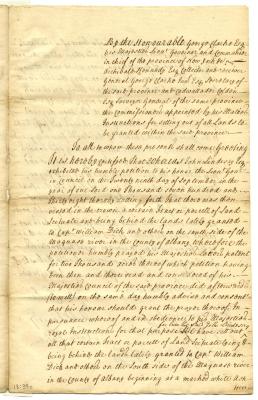 By the Honourable George Clarke Esq
his Majesties Lieut Governor and Commander
in chief of the province of New York &c
Archibald Kennedy Esq Collector and receiver
General George Clarke Junr Esq Secretary of
the said province and Cadwallader Colden
Esq Surveyor General of the same province
the commissioners appointed by his Majesties
Instructions for setting out of all Lands to
be granted within the said province
To all to whom these presents shall come Greeting
Know ye whereas John Lindesey Esq
exhibited his humble petition to his honor the Lieut Govr
in Council on the twenty ninth day of September in the
year of our Lord one Thousand Seven hundred and
thirty eight thereby setting forth that there was then
vested in the crown a certain tract or parcel of land
Scituate and being behind the lands lately granted to
Capt William Dick and others on the south side of the
Maquass river in the County of Albany wherefore the
petitioner humbly prayed his Majesties letters patent
for two thousand acres thereof which petition having
been then and there read and considered of his
Majesties Council of the said province did afterwards
to wit on the same day humbly advise and consent
that his honour should grant the prayer thereof In
pursuance whereof and in obedience to his Majesties
royal Instructions for that purpose
for him the said John Lindesey
all that certain tract or parcel of Land Scituate lying &
being behind the lands lately granted to Capt William
Dick and others on the South side of the Maquass river
in the County of Albany beginning at a marked white oak